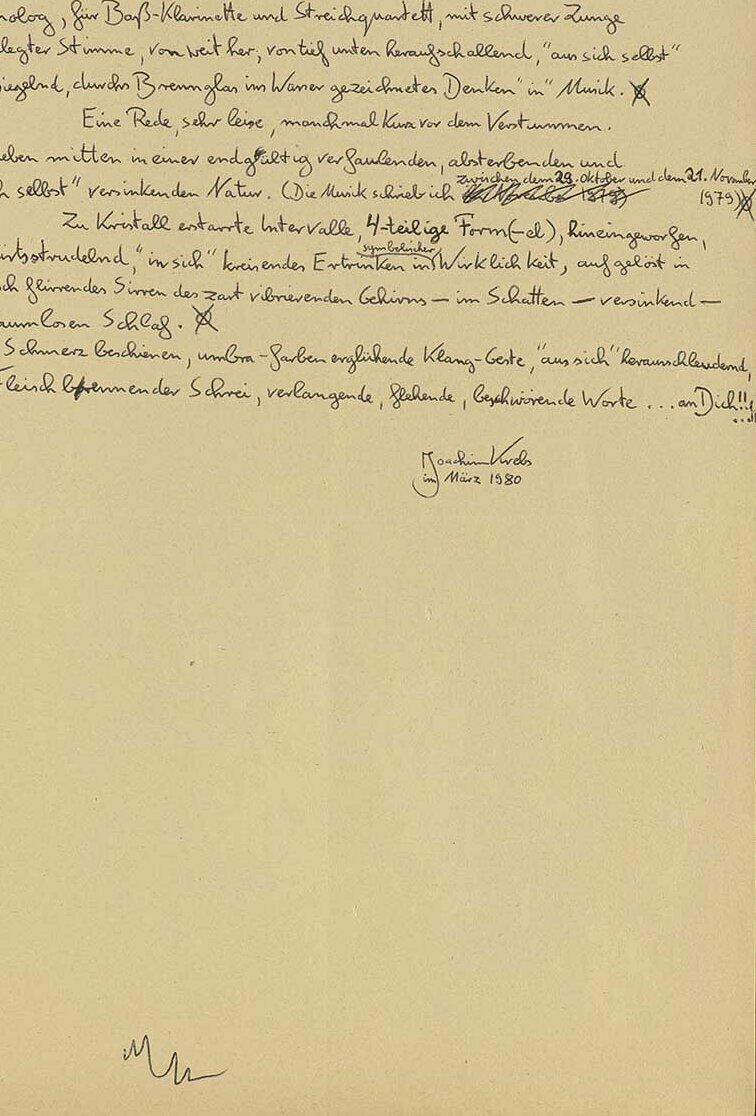 nolog, für Baß-Klarinette und Streichquartett, mit schwerer Zunge
legter Stimme, von weit her, von tief unten heraufschallend, "aus sich selbst"
iegelnd, durchs Brennglas ins Wasser gezeichnetes Denken" in "Musik.
Eine Rede, sehr leise, manchmal kurz vor dem Verstummen.
eben mitten in einer endgültig verfaulenden, absterbenden und
zwischen dem 29. Oktober und dem 21. November
h selbst" versinkenden Natur. (Die Musik schrieb ich 1979)
Zu Kristall erstarrte Intervalle, 4-teilige Form(-el), hineingeworfen,
symbolischer
ärtsstrudelnd, "in sich" kreisendes Ertrinken in Wirklichkeit, aufgelöst in
ch flirrendes Sirren des zart vibrierenden Gehirns – im Schatten – versinkend –
aumlosen Schlaf.
Schmerz beschienen, umbra-farben erglühende Klang-Geste, "aus sich" herausschleudernd,
Fleisch brennender Schrei, verlangende, flehende, beschwörende Worte ... an Dich!!
...!!
Joachim Krebs
im März 1980